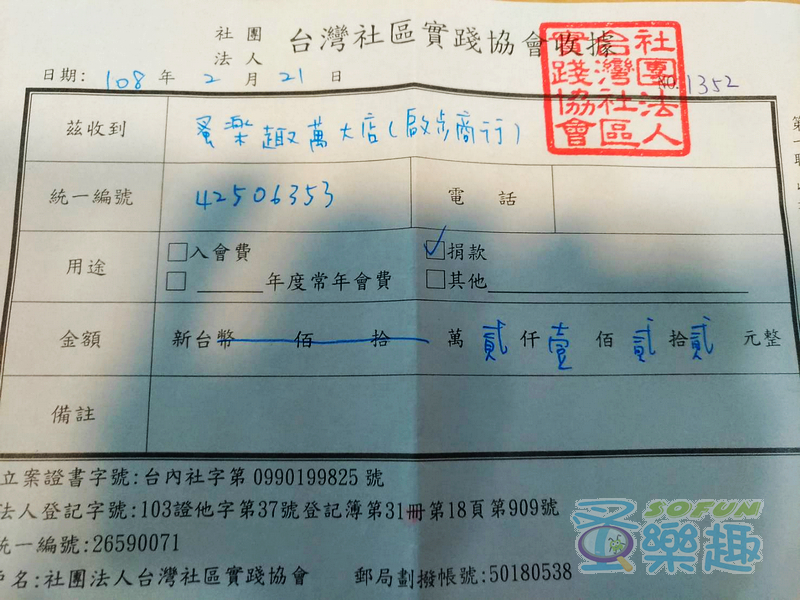 社團法人 台灣社區實踐協會收據
日期: 108 年 2 月 21 日 NO. 1352
社團法人台灣社區實踐協會
茲收到 蚤樂趣萬大店(啟步商行)
統一編號 42506353 電話
用途 □入會費 ☑捐款
□ ______年度常年會費 □其他
金額 新台幣 佰 拾 萬 貳 仟 壹 佰 貳 拾 貳 元整
備註
立案證書字號:台內社字第 0990199825 號
法人登記字號:103證他字第37號登記簿第31冊第18頁第909號
統一編號:26590071
戶名:社團法人台灣社區實踐協會 郵局劃撥帳號:50180538
SOFUN
蚤樂趣